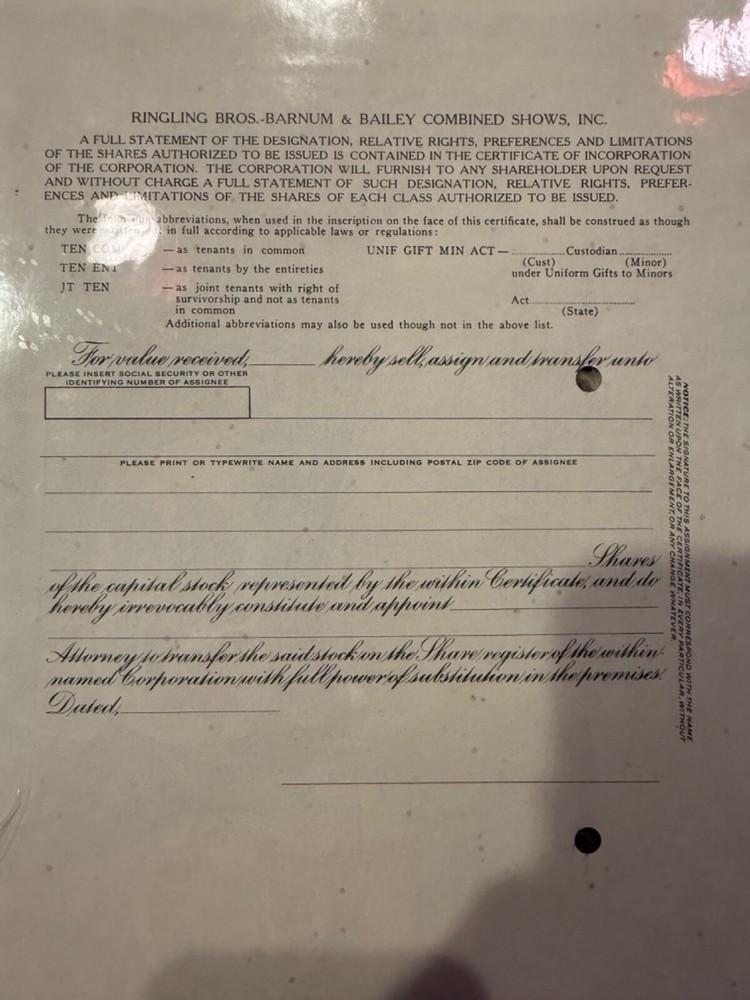 RINGLING BROS.-BARNUM & BAILEY COMBINED SHOWS, INC.
A FULL STATEMENT OF THE DESIGNATION, RELATIVE RIGHTS, PREFERENCES AND LIMITATIONS
OF THE SHARES AUTHORIZED TO BE ISSUED IS CONTAINED IN THE CERTIFICATE OF INCORPORATION
OF THE CORPORATION. THE CORPORATION WILL FURNISH TO ANY SHAREHOLDER UPON REQUEST
AND WITHOUT CHARGE A FULL STATEMENT OF SUCH DESIGNATION, RELATIVE RIGHTS, PREFER-
ENCES AND LIMITATIONS OF THE SHARES OF EACH CLASS AUTHORIZED TO BE ISSUED.
The following abbreviations, when used in the inscription on the face of this certificate, shall be construed as though
they were written out in full according to applicable laws or regulations:
TEN COM —as tenants in common UNIF GIFT MIN ACT— Custodian
TEN ENT —as tenants by the entireties (Cust) (Minor)
under Uniform Gifts to Minors
JT TEN —as joint tenants with right of
survivorship and not as tenants Act
in common (State)
Additional abbreviations may also be used though not in the above list.
For value received, hereby sell, assign and transfer unto
PLEASE INSERT SOCIAL SECURITY OR OTHER
IDENTIFYING NUMBER OF ASSIGNEE
PLEASE PRINT OR TYPEWRITE NAME AND ADDRESS INCLUDING POSTAL ZIP CODE OF ASSIGNEE
Shares
of the capital stock represented by the within Certificate, and do
hereby irrevocably constitute and appoint
Attorney to transfer the said stock on the Share register of the within-
named Corporation with full power of substitution in the premises.
Dated,
NOTICE: THE SIGNATURE TO THIS ASSIGNMENT MUST CORRESPOND WITH THE NAME
AS WRITTEN UPON THE FACE OF THE CERTIFICATE, IN EVERY PARTICULAR, WITHOUT
ALTERATION OR ENLARGEMENT, OR ANY CHANGE WHATEVER.